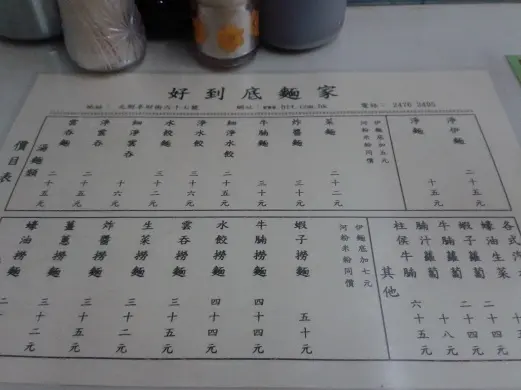 好到底麵家
地址： 元朗阜財街六十七號 網址：www.htt.com.hk 電話： 2476 2495
價目表
湯麵類
雲吞麵 二十五元
淨雲吞 二十元
細淨雲吞 十六元
水餃麵 三十二元
淨水餃 三十六元
細淨水餃 二十元
牛腩麵 三十元
炸醬麵 三十元
菜麵 二十二元
伊麵底加五元
河粉米粉同價
淨麵 十五元
淨伊麵 二十五元
蠔油撈麵 二十元
薑蔥撈麵 三十二元
炸醬撈麵 三十五元
生菜撈麵 三十二元
雲吞撈麵 三十五元
水餃撈麵 四十四元
牛腩撈麵 四十四元
蝦子撈麵 五十元
伊麵底加七元
河粉米粉同價
其他
柱侯牛腩 六十五元
腩汁蘿蔔 十八元
蝦子蘿蔔 二十四元
蠔油生菜 二十四元
各式汽水 元